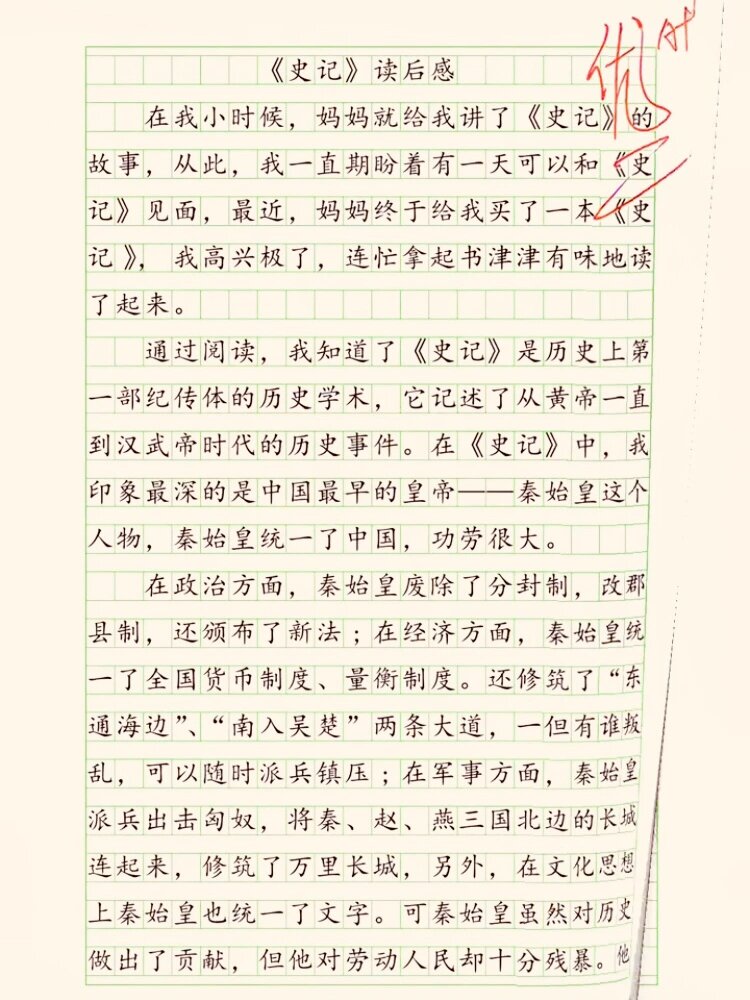 《史记》读后感
优
在我小时候，妈妈就给我讲了《史记》的
故事，从此，我一直期盼着有一天可以和《史
记》见面，最近，妈妈终于给我买了一本《史
记》，我高兴极了，连忙拿起书津津有味地读
了起来。
通过阅读，我知道了《史记》是历史上第
一部纪传体的历史学术，它记述了从黄帝一直
到汉武帝时代的历史事件。在《史记》中，我
印象最深的是中国最早的皇帝——秦始皇这个
人物，秦始皇统一了中国，功劳很大。
在政治方面，秦始皇废除了分封制，改郡
县制，还颁布了新法；在经济方面，秦始皇统
一了全国货币制度、量衡制度。还修筑了“东
通海边”、“南入吴楚”两条大道，一但有谁叛
乱，可以随时派兵镇压；在军事方面，秦始皇
派兵出击匈奴，将秦、赵、燕三国北边的长城
连起来，修筑了万里长城，另外，在文化思想
上秦始皇也统一了文字。可秦始皇虽然对历史
做出了贡献，但他对劳动人民却十分残暴。他